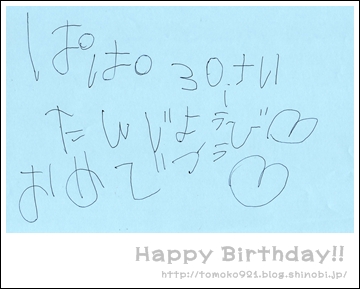 ぱぱ 30さい
たんじょうび♡
おめでとう♡
Happy Birthday!!
http://tomoko921.blog.shinobi.jp/